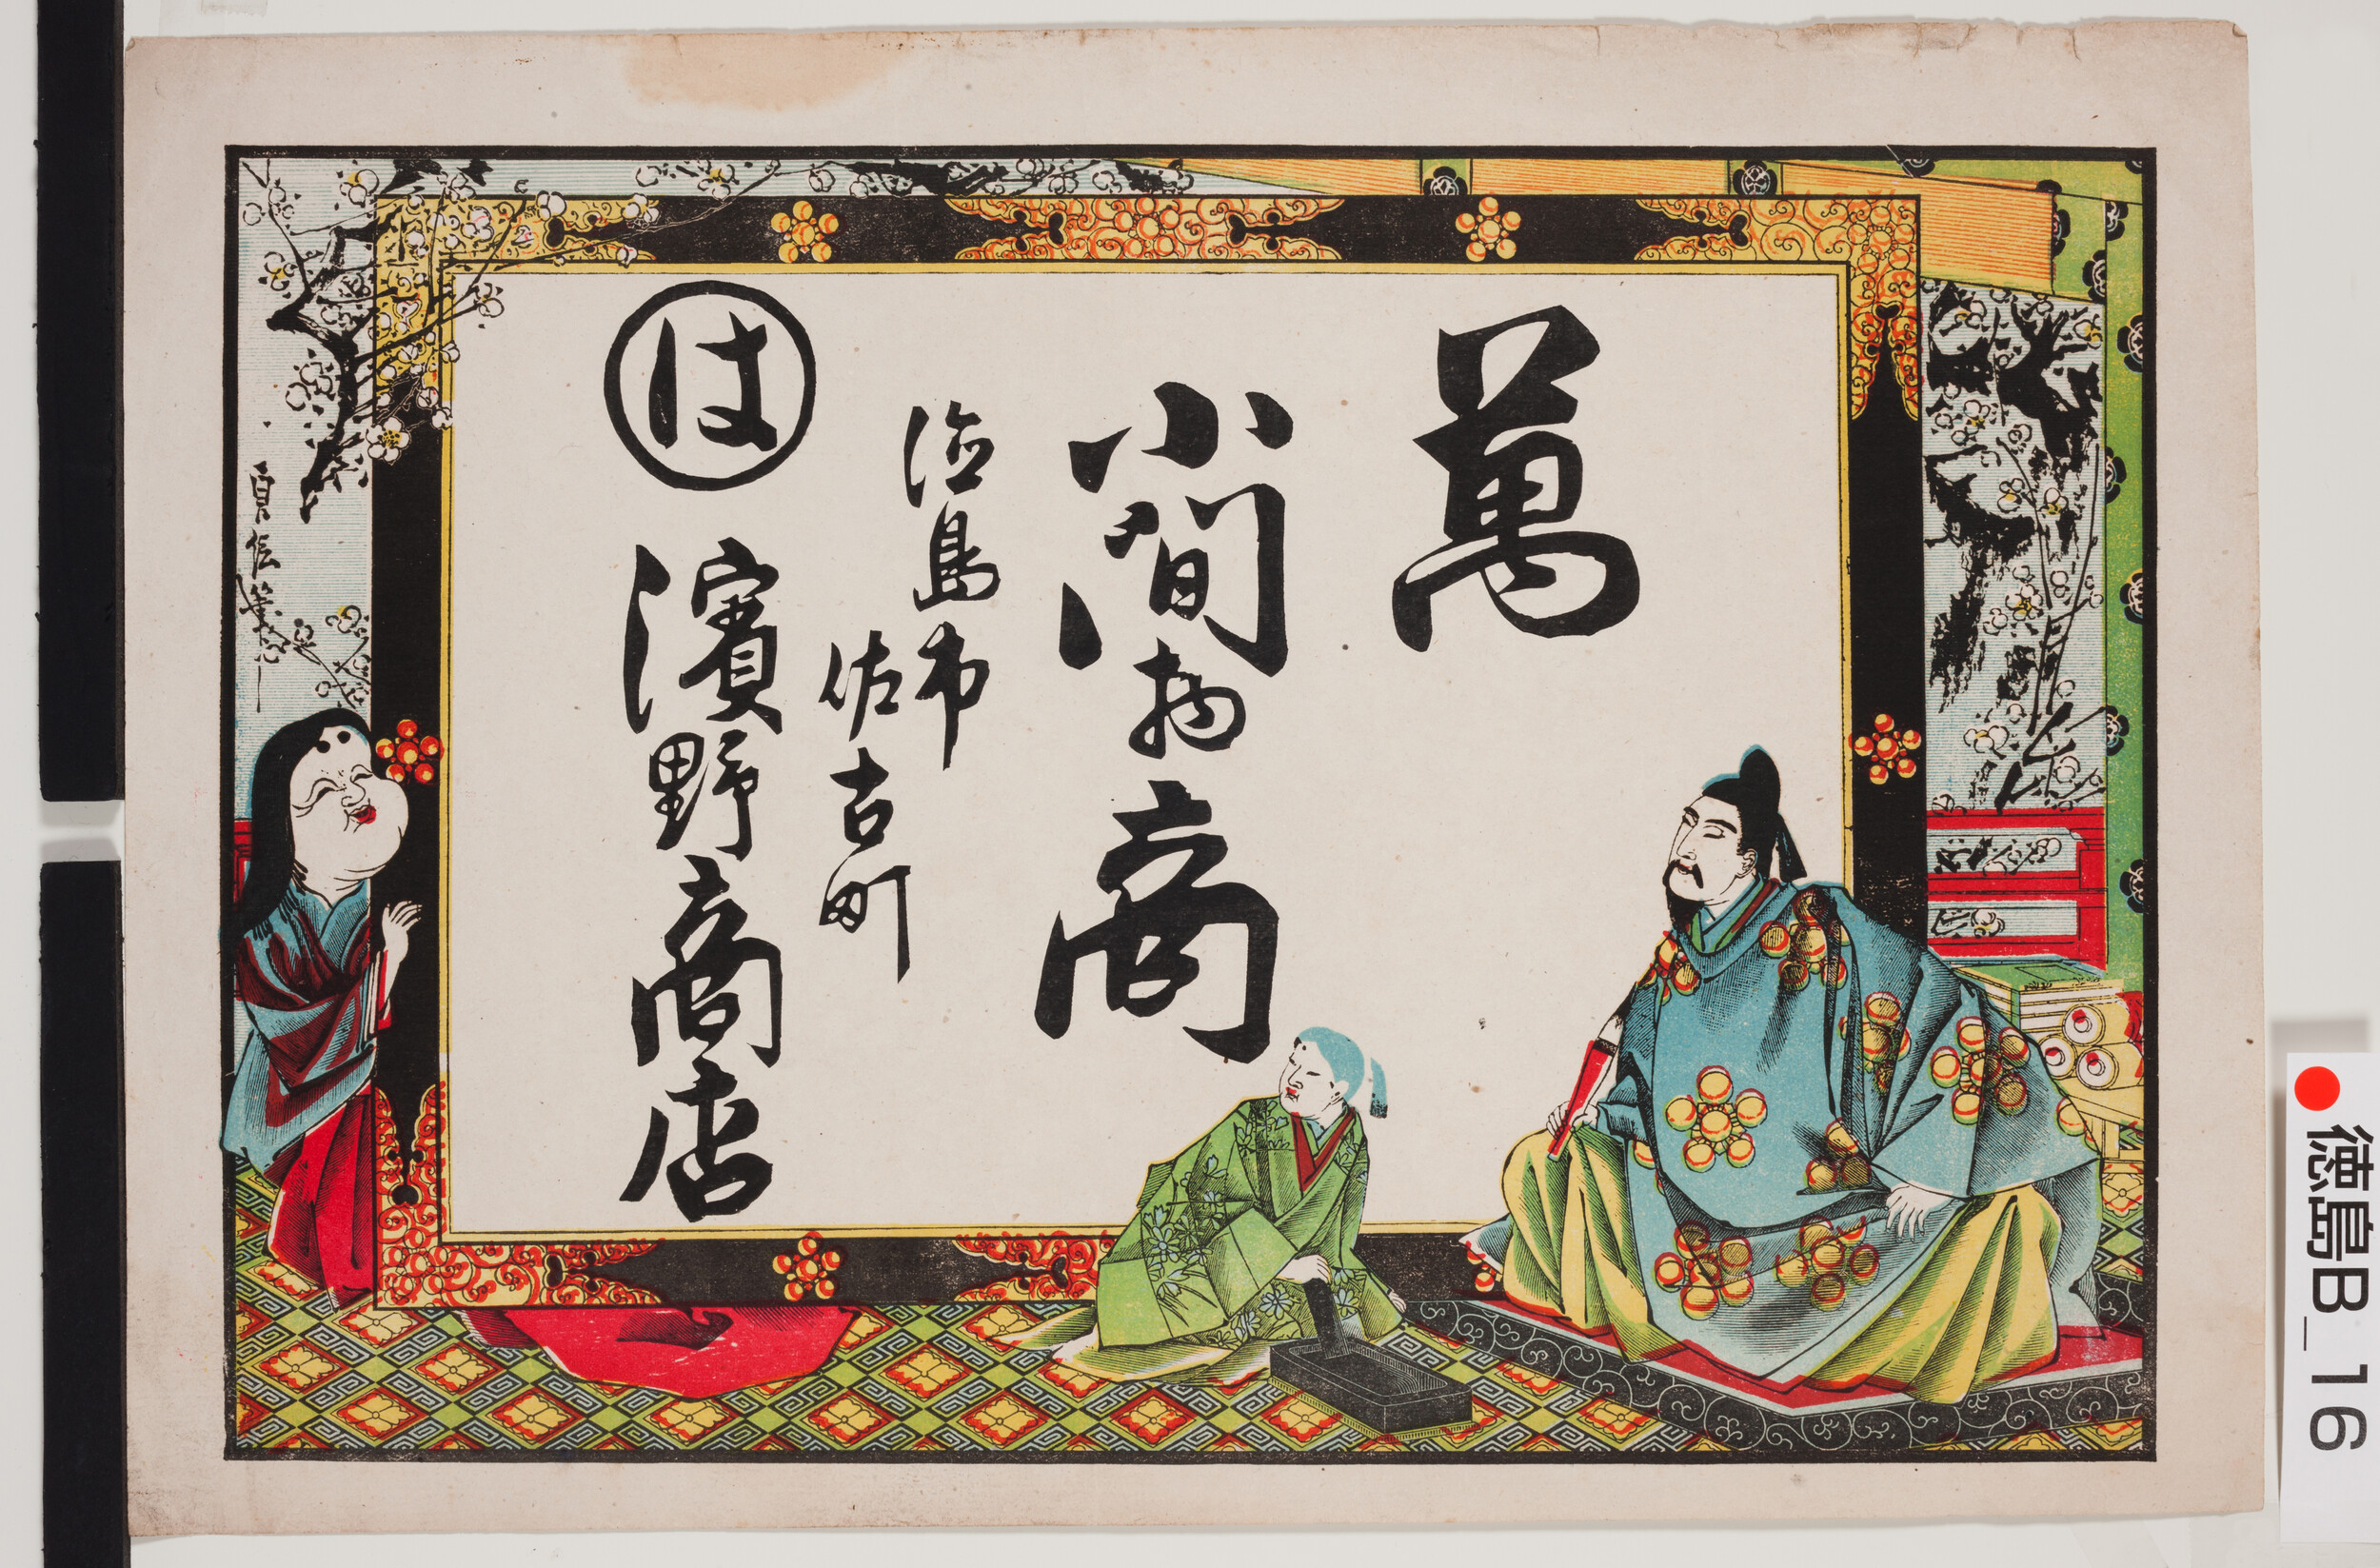 萬
小間物商
徳島市
佐古町
は
濱野商店
貞信筆
徳島B_16